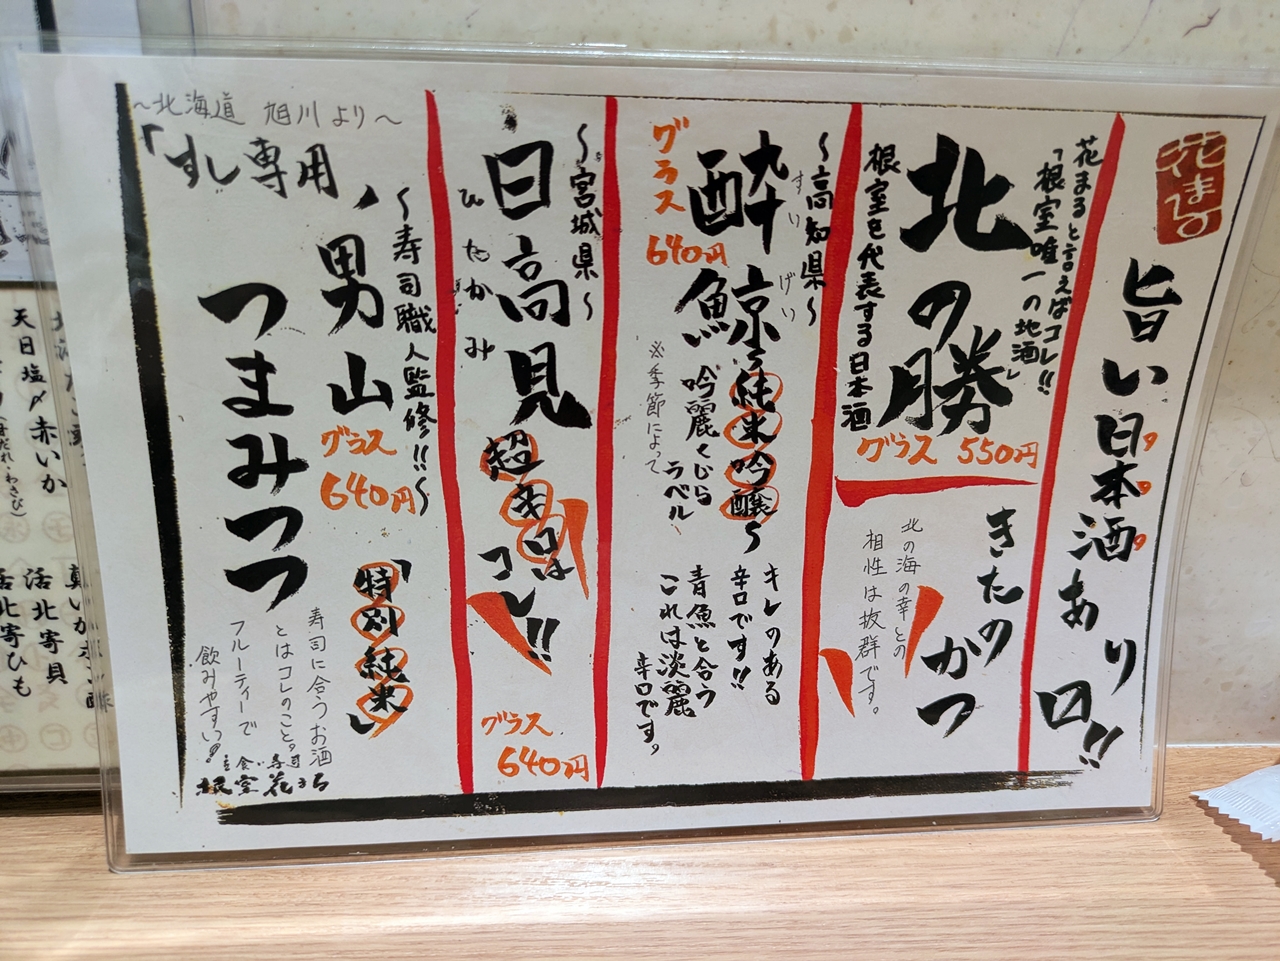 花まる
旨い日本酒あり〼!!
花まると言えばコレ!!
「根室唯一の地酒」
北の勝
根室を代表する日本酒
グラス 550円
きたの
かつ
北の海の幸との
相性は抜群です。
〜高知県〜
酔鯨
すいげい
〜純米吟醸〜
鮮
吟麗くじら
ラベル
※季節によって
グラス
640円
キレのある
辛口です!!
青魚と合う
これは淡麗
辛口です。
〜宮城県〜
日高見
ひたかみ
超辛口は
コレ!!
グラス
640円
〜北海道 旭川より〜
「すし専用」
〜寿司職人監修!!〜
男山
つまみつつ
グラス
640円
「特別純米」
寿司に合うお酒
とはコレのこと。
フルーティーで
飲みやすい!
立食い寿司
根室花まる
天日塩〆赤いか
活北寄貝
活北寄ひも